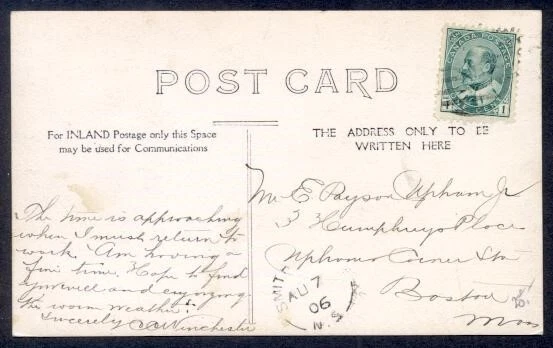 POST CARD
CANADA POSTAGE
1
For INLAND Postage only this Space
may be used for Communications
THE ADDRESS ONLY TO BE
WRITTEN HERE
The time is approaching
when I must return to
work. Am having a
fine time. Hope to find
you well and enjoying
the warm weather.
Sincerely Winchester
Mr E Payson Upham Jr
3 Humphreys Place
Uphams Corner Sta
Boston
Mass
SMITH
AU 7
06
N.S